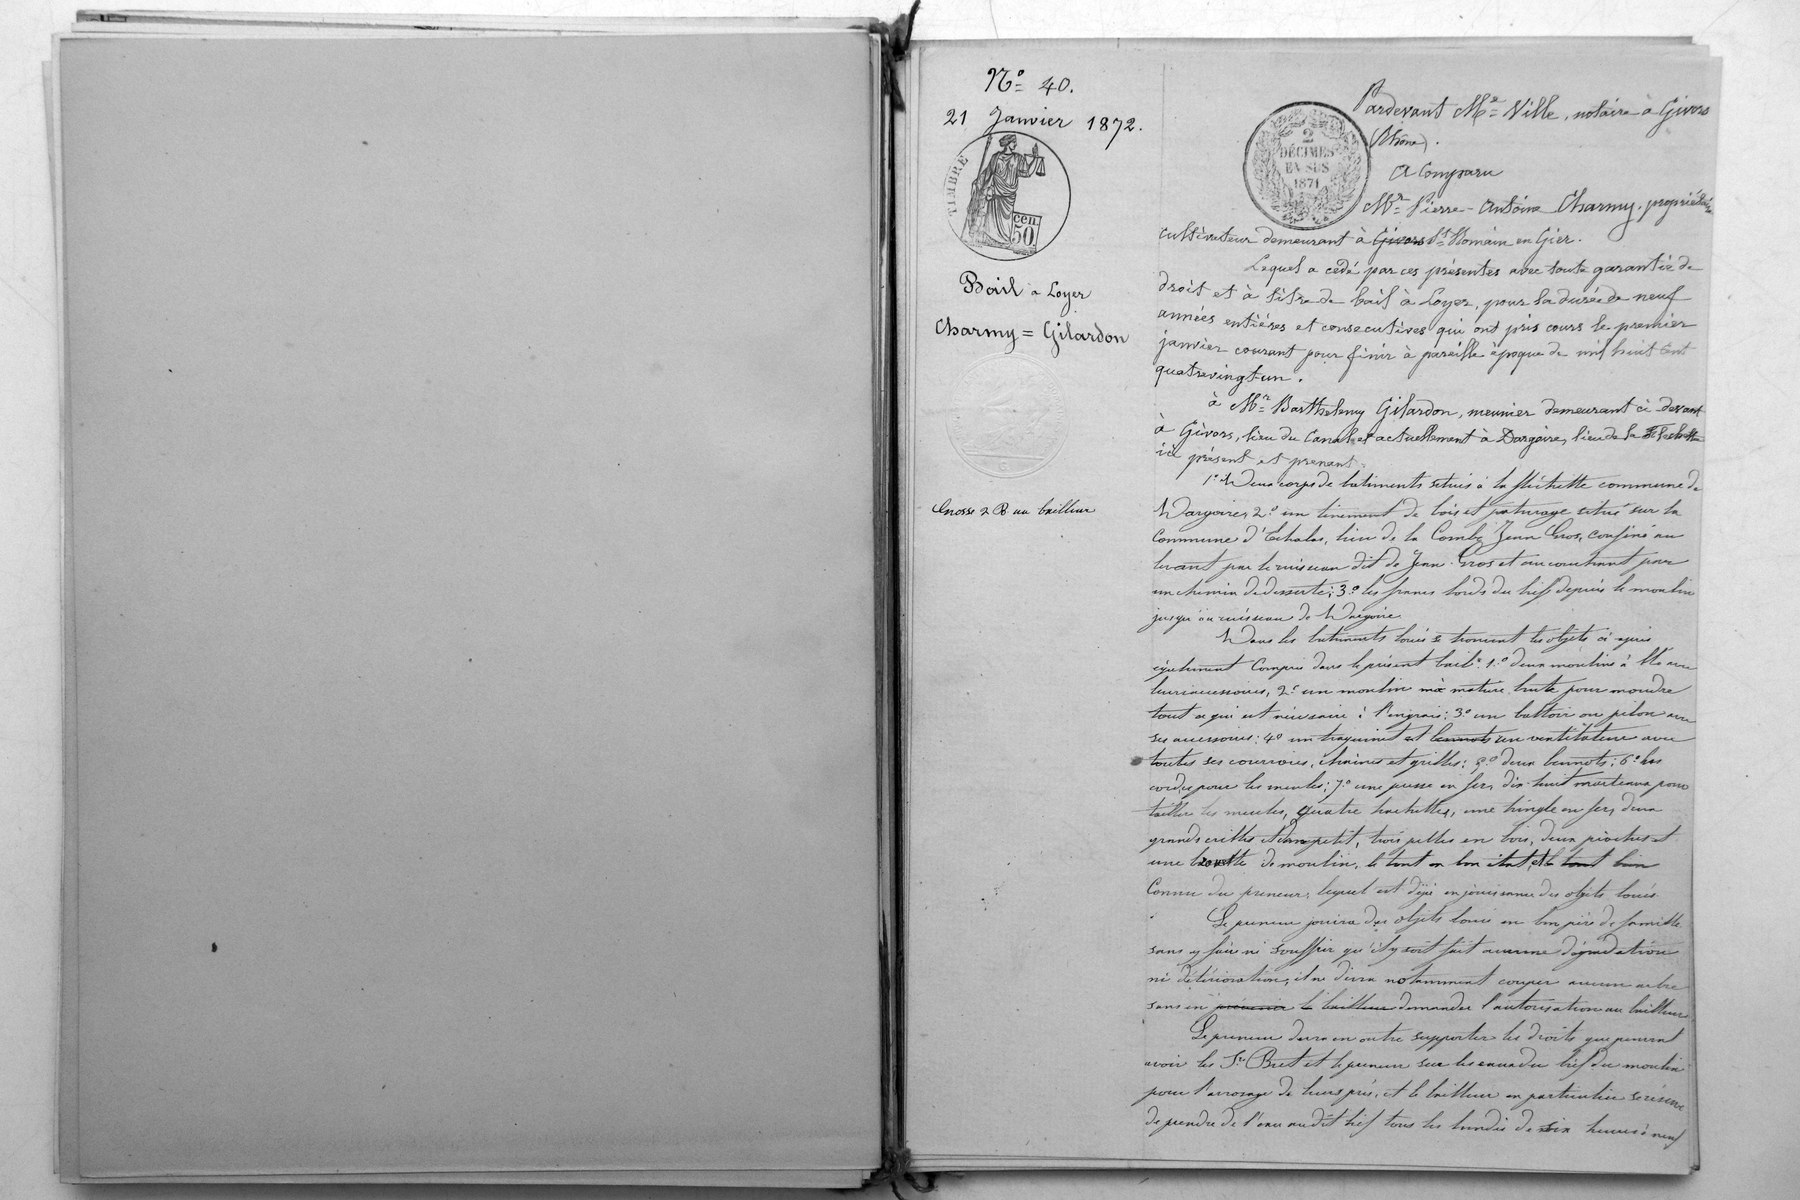 Nº 40.
21 Janvier 1872.
TIMBRE
cen.
50
Bail a Loyer
Charmy = Gilardon
Grosse 2 R au bailleur
2
DÉCIMES
EN SUS
1871
Pardevant Me Ville, notaire à Givors
(Rhône).
A Comparu
Mr Pierre-Antoine Charmy, propriétaire
cultivateur demeurant à Givors St Romain en Gier.
Lequel a cédé par ces présentes avec toute garantie de
droit et à titre de bail à Loyer, pour la durée de neuf
années entières et consecutives qui ont pris cours le premier
janvier courant pour finir à pareille époque de mil huit cent
quatrevingt-un.
à Mr Barthelemy Gilardon, meunier demeurant ci devant
à Givors, lieu du Canal et actuellement à Dargoire, lieu de la Flechette
ici présent et prenant.
1º Deux corps de batiments situés à la fléchette commune de
Dargoire, 2º un tinement de bois et paturage situé sur la
Commune d'Echalas, lieu de la Combe Jean Gros, confiné au
levant par le ruisseau dit de Jean Gros et au couchant par
un chemin de desserte; 3º les francs bords du bief depuis le moulin
jusqu'au ruisseau de Dargoire
Dans les batiments loués se trouvent les objets ci après
également Compris dans le présent bail: 1º deux moulins à blé avec
leurs accessoires, 2º un moulin brute pour moudre
tout ce qui est nécessaire à l'engrais; 3º un battoir ou pilon avec
ses accessoires: 4º un et bennots un ventilateur avec
toutes ses courroies, chaines et grilles; 5º deux bennots; 6º les
cordes pour les meules; 7º une presse en fer, dix-huit marteaux pour
tailler les meules, quatre hachettes, une tringle en fer, deux
grands cribles et un petit, trois pelles en bois, deux pioches et
une brouette de moulin, le tout en bon état, et le tout bien
Connu du preneur, lequel est déjà en jouissance des objets loués
Le preneur jouira des objets loués en bon père de famille
sans y faire ni souffrir qu'il y soit fait aucune dégradation
ni détérioration, il ne devra notamment couper aucun arbre
sans en prévenir le bailleur demander l'autorisation au bailleur
Le preneur devra en outre supporter les droits que peuvent
avoir les Sr Bret et le preneur sur les eaux du bief du moulin
pour l'arrosage de leurs prés, et le bailleur en particulier se réserve
de prendre de l'eau audit bief tous les lundis de six heures à neuf